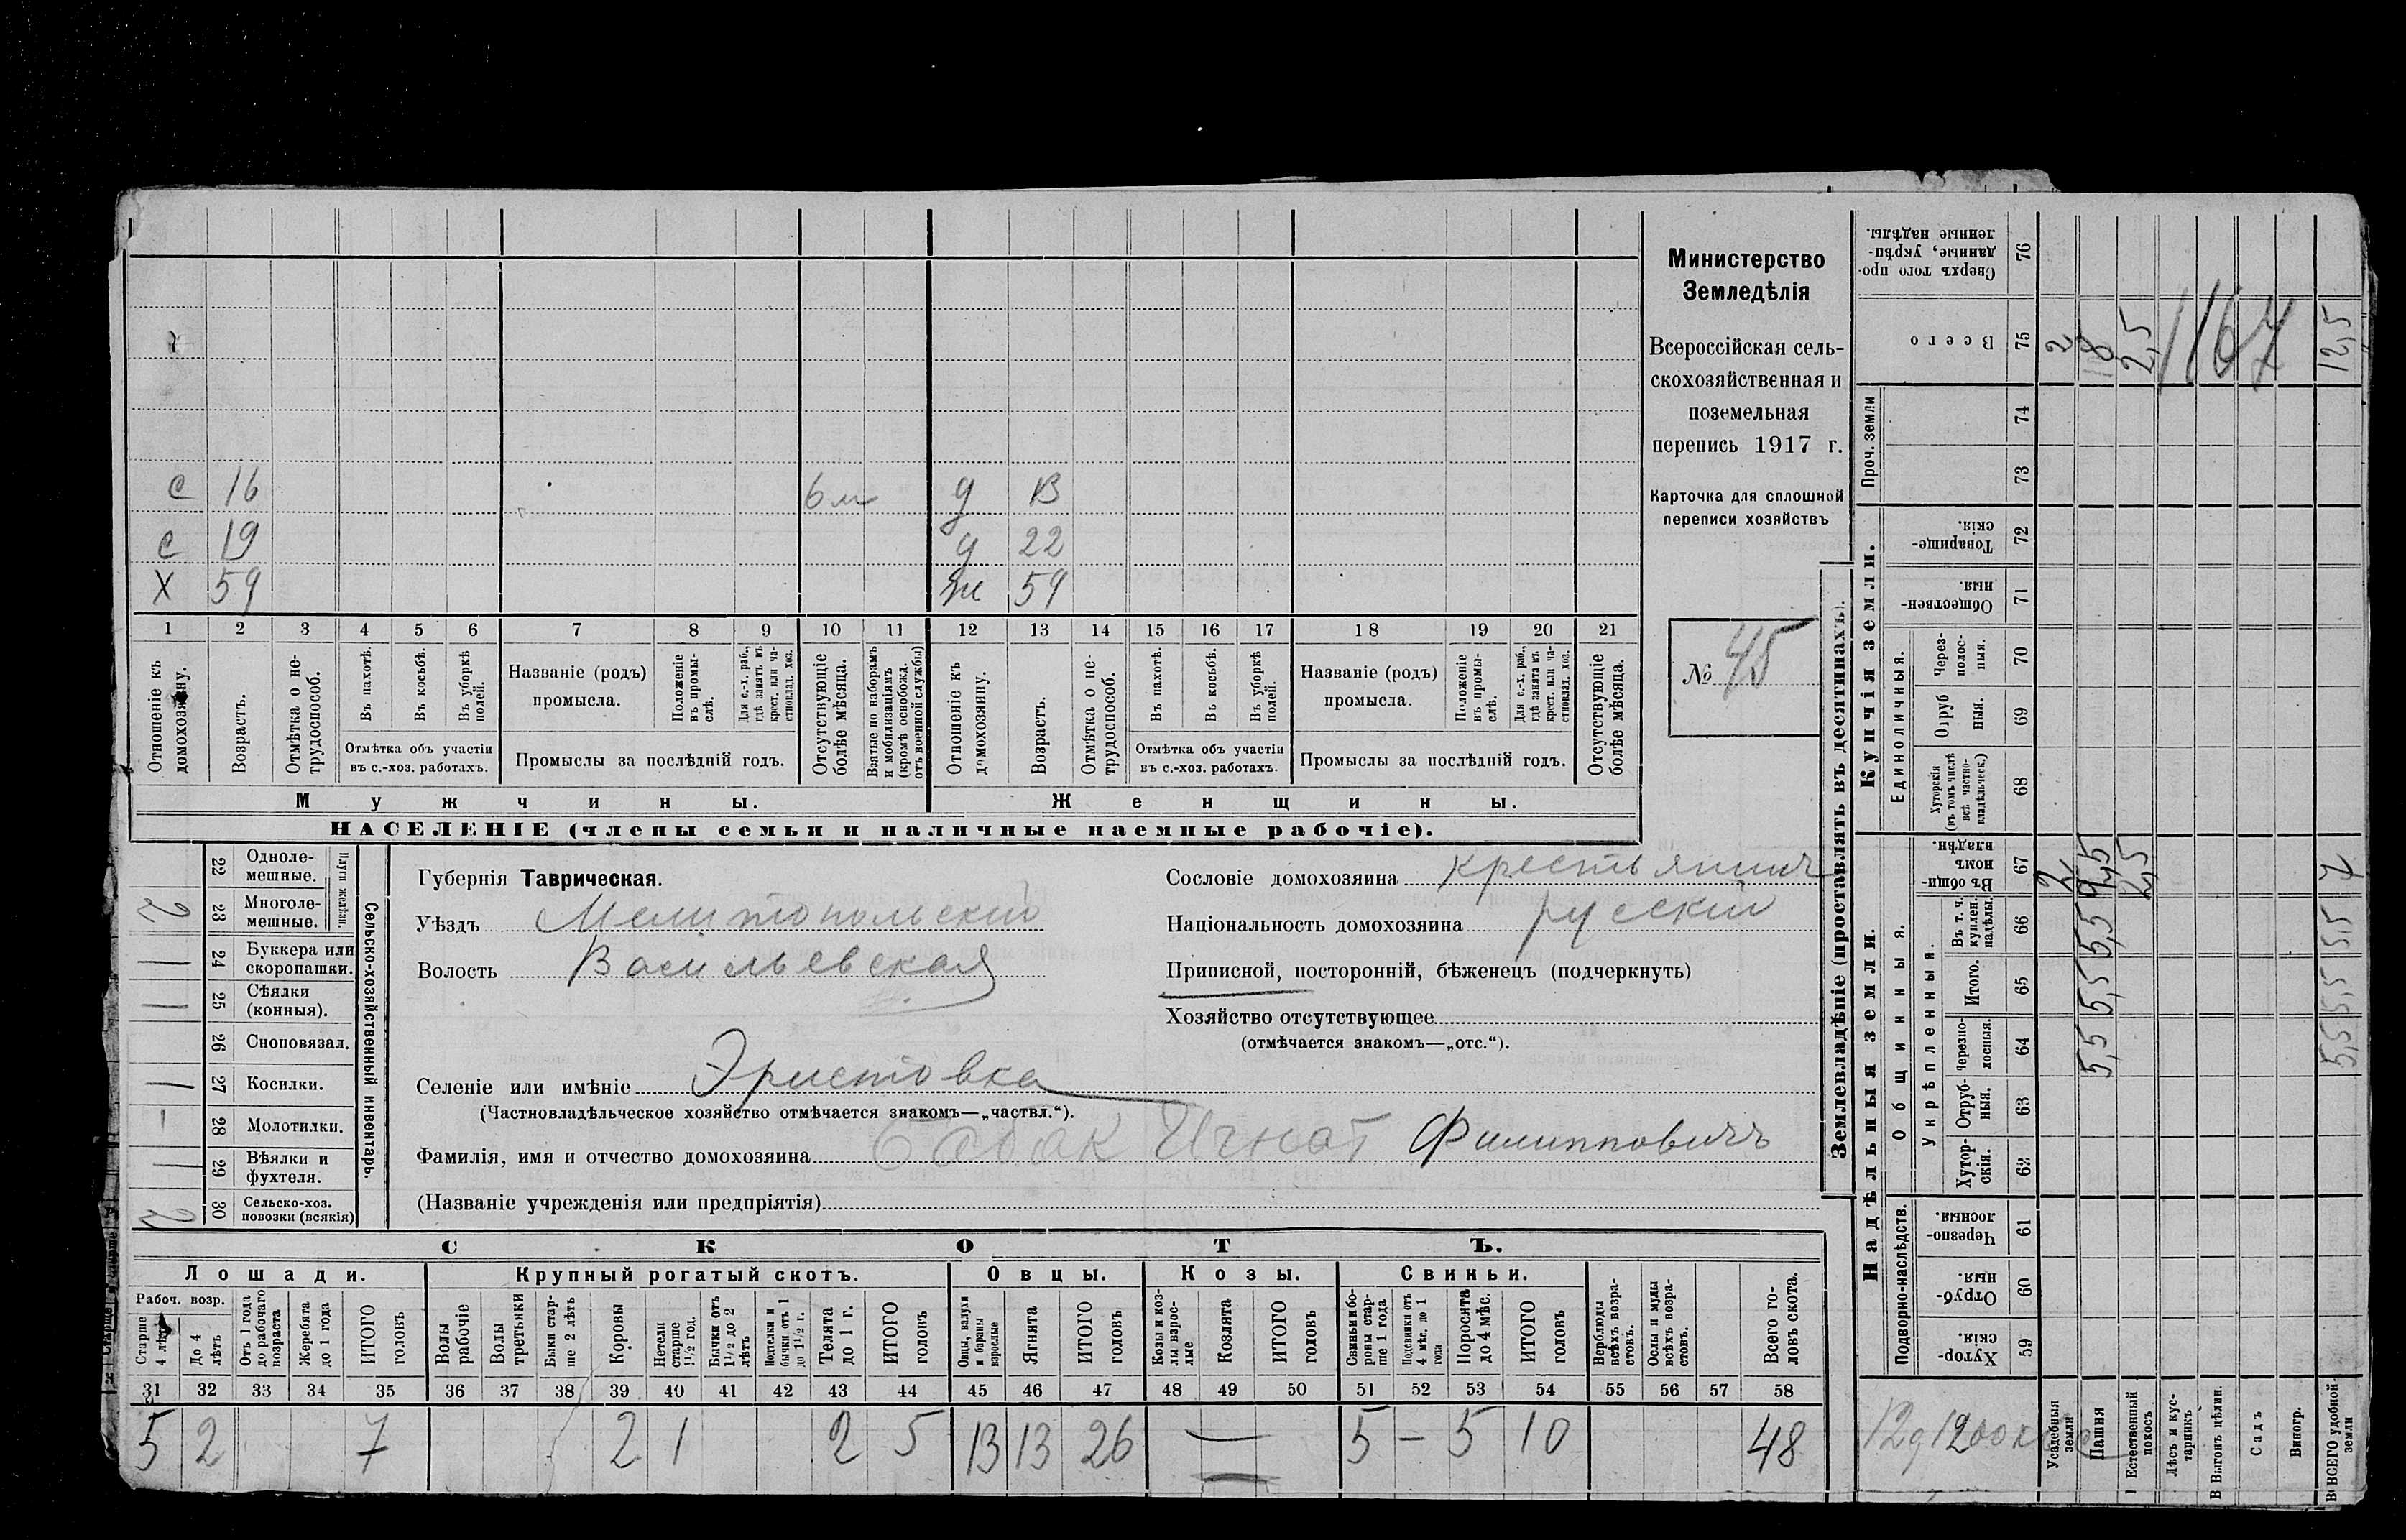 Министерство
Земледѣлія
Всероссійская сель-
скохозяйственная и
поземельная
перепись 1917 г.
Карточка для сплошной
переписи хозяйствъ
№ 45
с 16 6 м д 13
с 19 д 22
Х 59 ж 59
1 2 3 4 5 6 7 8 9 10 11 12 13 14 15 16 17 18 19 20 21
Отношеніе къ домохозяину.
Возрастъ.
Отмѣтка о не-трудоспособ.
Въ пахотѣ.
Въ косьбѣ.
Въ уборкѣ полей.
Отмѣтка объ участіи
въ с.-хоз. работахъ.
Названіе (родъ)
промысла.
Положеніе въ промы-слѣ.
Для с.-х. раб., гдѣ занятъ въ крест. или ча-стновлад. хоз.
Промыслы за послѣдній годъ.
Отсутствующіе болѣе мѣсяца.
Взятые по наборамъ и мобилизаціямъ (кромѣ освобожд. отъ военной службы)
Отношеніе къ домохозяину.
Возрастъ.
Отмѣтка о не-трудоспособ.
Въ пахотѣ.
Въ косьбѣ.
Въ уборкѣ полей.
Отмѣтка объ участіи
въ с.-хоз. работахъ.
Названіе (родъ)
промысла.
Положеніе въ промы-слѣ.
Для с.-х. раб., гдѣ занята въ крест. или ча-стновлад. хоз.
Промыслы за послѣдній годъ.
Отсутствующіе болѣе мѣсяца.
Мужчины.
Женщины.
НАСЕЛЕНІЕ (члены семьи и наличные наемные рабочіе).
Сельско-хозяйственный инвентарь.
Плуги желѣзн.
22 Одноле-мешные.
2 23 Многоле-мешные.
1 24 Буккера или скоропашки.
1 25 Сѣялки (конныя).
26 Сноповязал.
1 27 Косилки.
28 Молотилки.
1 29 Вѣялки и фухтеля.
2 30 Сельско-хоз. повозки (всякія)
Губернія Таврическая.
Уѣздъ Мелитопольский
Волость Васильевская
Селеніе или имѣніе Эристовка
(Частновладѣльческое хозяйство отмѣчается знакомъ—„частвл.“).
Фамилія, имя и отчество домохозяина Бабак Игнат Филипповичъ
(Названіе учрежденія или предпріятія)
Сословіе домохозяина крестьянинъ
Національность домохозяина русский
Приписной, посторонній, бѣженецъ (подчеркнуть)
Хозяйство отсутствующее
(отмѣчается знакомъ—„отс.“).
СКОТЪ.
Лошади.
Крупный рогатый скотъ.
Овцы.
Козы.
Свиньи.
Рабоч. возр.
Старше 4 лѣтъ
До 4 лѣтъ
Отъ 1 года до рабочаго возраста
Жеребята до 1 года
ИТОГО головъ
Волы рабочіе
Волы третьяки
Быки стар-ше 2 лѣтъ
Коровы
Нетели старше 1½ год.
Бычки отъ 1½ до 2 лѣтъ
Подтелки и бычки отъ 1 до 1½ г.
Телята до 1 г.
ИТОГО головъ
Овцы, валухи и бараны взрослые
Ягнята
ИТОГО головъ
Козы и коз-лы взрос-лые
Козлята
ИТОГО головъ
Свиньи и бо-ровы стар-ше 1 года
Подсвинки отъ 4 мѣс. до 1 года
Поросята до 4 мѣс.
ИТОГО головъ
Верблюды всѣхъ возра-стовъ.
Ослы и мулы всѣхъ возра-стовъ.
Всего го-ловъ скота.
31 32 33 34 35 36 37 38 39 40 41 42 43 44 45 46 47 48 49 50 51 52 53 54 55 56 57 58
5 2 7 2 1 2 5 13 13 26 — 5 — 5 10 48
Землевладѣніе (проставлять въ десятинахъ).
Надѣльныя земли.
Купчія земли.
Проч. земли
Подворно-наслѣдств.
Общинныя.
Укрѣпленныя.
Единоличныя.
Сверхъ того про-данные, укрѣп-ленные надѣлы. 76
Всего 75 2 18 2,5 12,5
74
73
Товарище-скія. 72
Обществен-ныя. 71
Через-полос-ныя. 70
Отруб ныя. 69
Хуторскія (въ томъ числѣ всѣ частно-владѣльческ.) 68
Въ общин-номъ владѣн. 67 2 2,5 7
Въ т. ч. куплен. надѣлы. 66 5,5 5,5
Итого. 65 5,5 5,5
Черезпо-лосныя. 64 5,5 5,5
Отруб-ныя. 63
Хутор-скія. 62
Черезпо-лосныя. 61
Отруб-ныя. 60
Хутор-скія. 59
Усадебныя земли
Пашня
Естественный покосъ
Лѣсъ и кус-тарникъ
Выгонъ цѣлин.
Садъ
Виногр.
ВСЕГО удобной земли